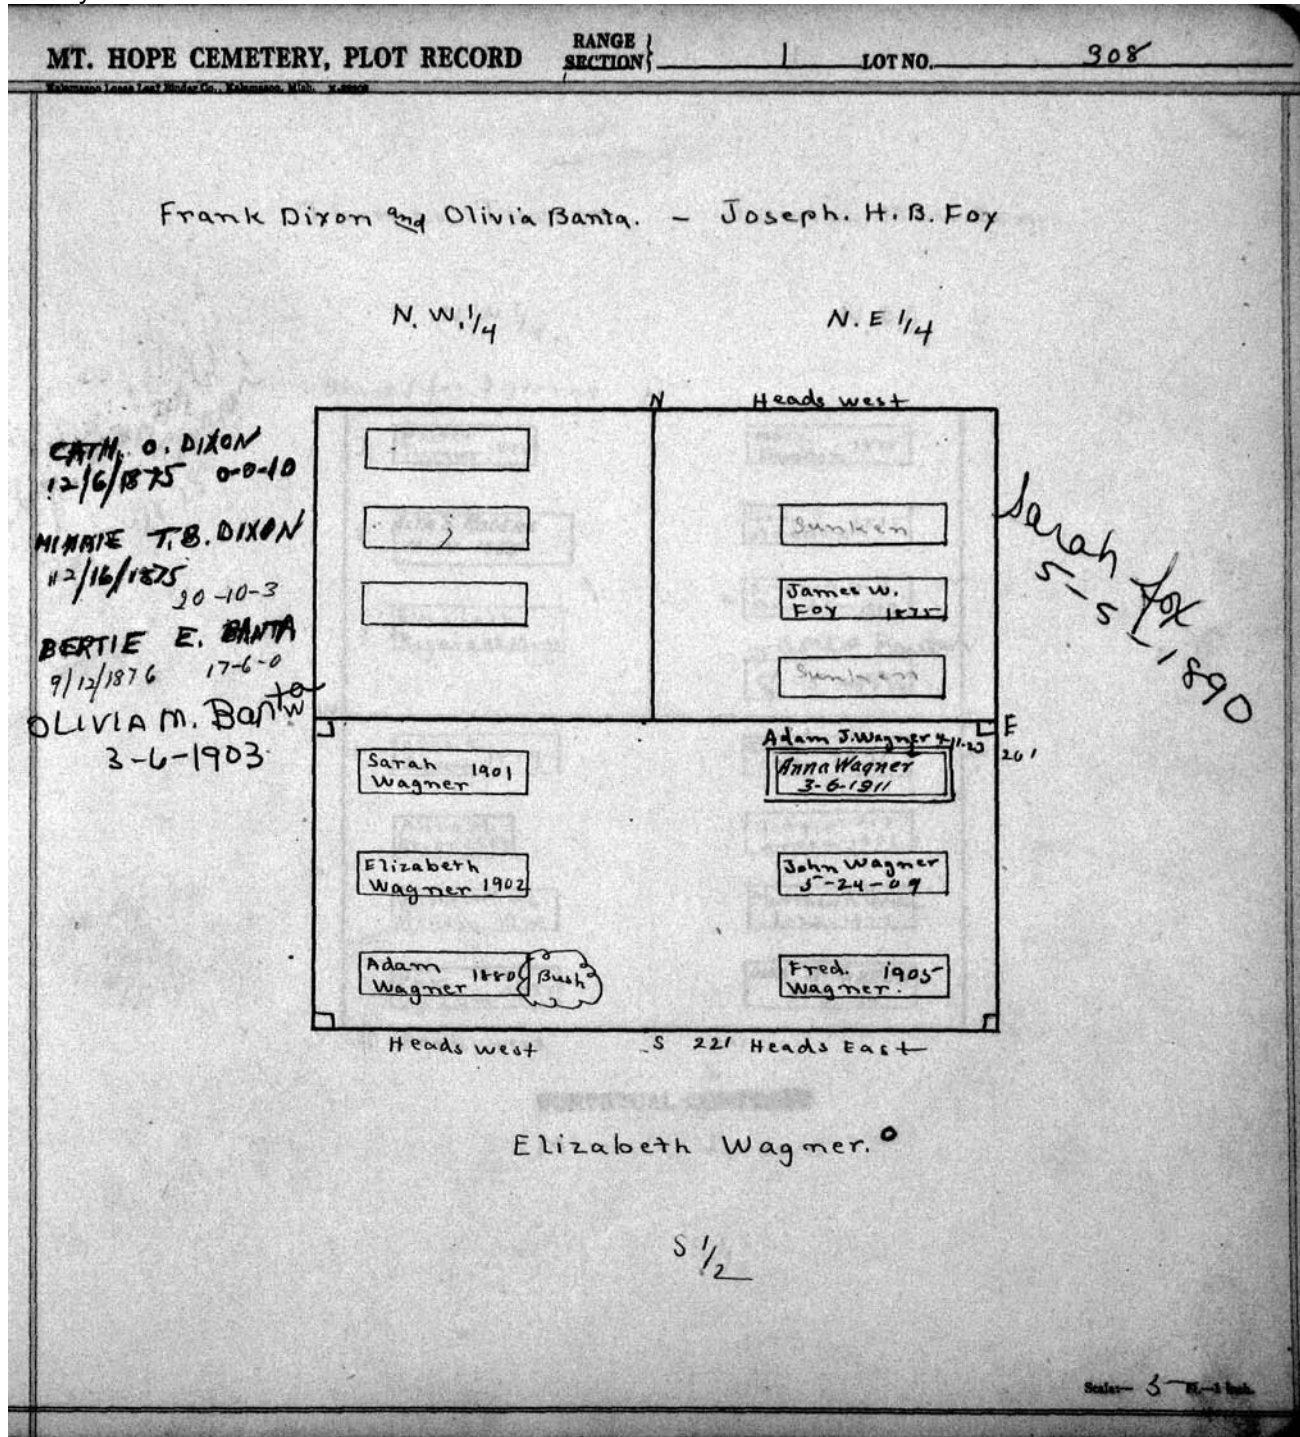 MT. HOPE CEMETERY, PLOT RECORD RANGE SECTION 1 LOT NO. 308
Kalamazoo Loose Leaf Binder Co., Kalamazoo, Mich.
Frank Dixon and Olivia Banta. – Joseph. H. B. Foy
N. W. 1/4 N. E 1/4
N Heads west
CATH. O. DIXON
12/6/1875 0-0-10
MINNIE T.B. DIXON
12/16/1875
20-10-3
BERTIE E. BANTA
9/12/1876 17-6-0
OLIVIA M. Banta
3-6-1903
W
Sunken
James W.
Foy 1875
Sunken
Sarah Fox
5-5-1890
E
Adam J. Wagner
Sarah 1901
Wagner
Anna Wagner
3-6-1911
Elizabeth
Wagner 1902
John Wagner
5-24-09
Adam 1880
Wagner
Bush
Fred. 1905
Wagner.
Heads west S 22' Heads East
Elizabeth Wagner.
S 1/2
Scale:— 5 Ft.—1 Inch.